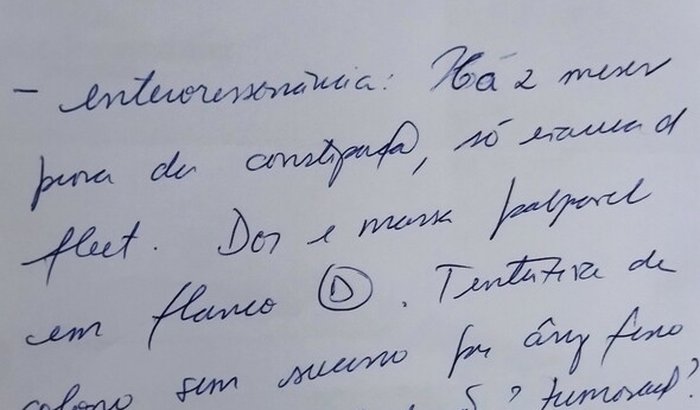 - enterorressonância: Há 2 meses
piora da constipação, só evacua c/
fleet. Dor e massa palpável
em flanco D. Tentativa de
colono sem sucesso por âng
tumoral?